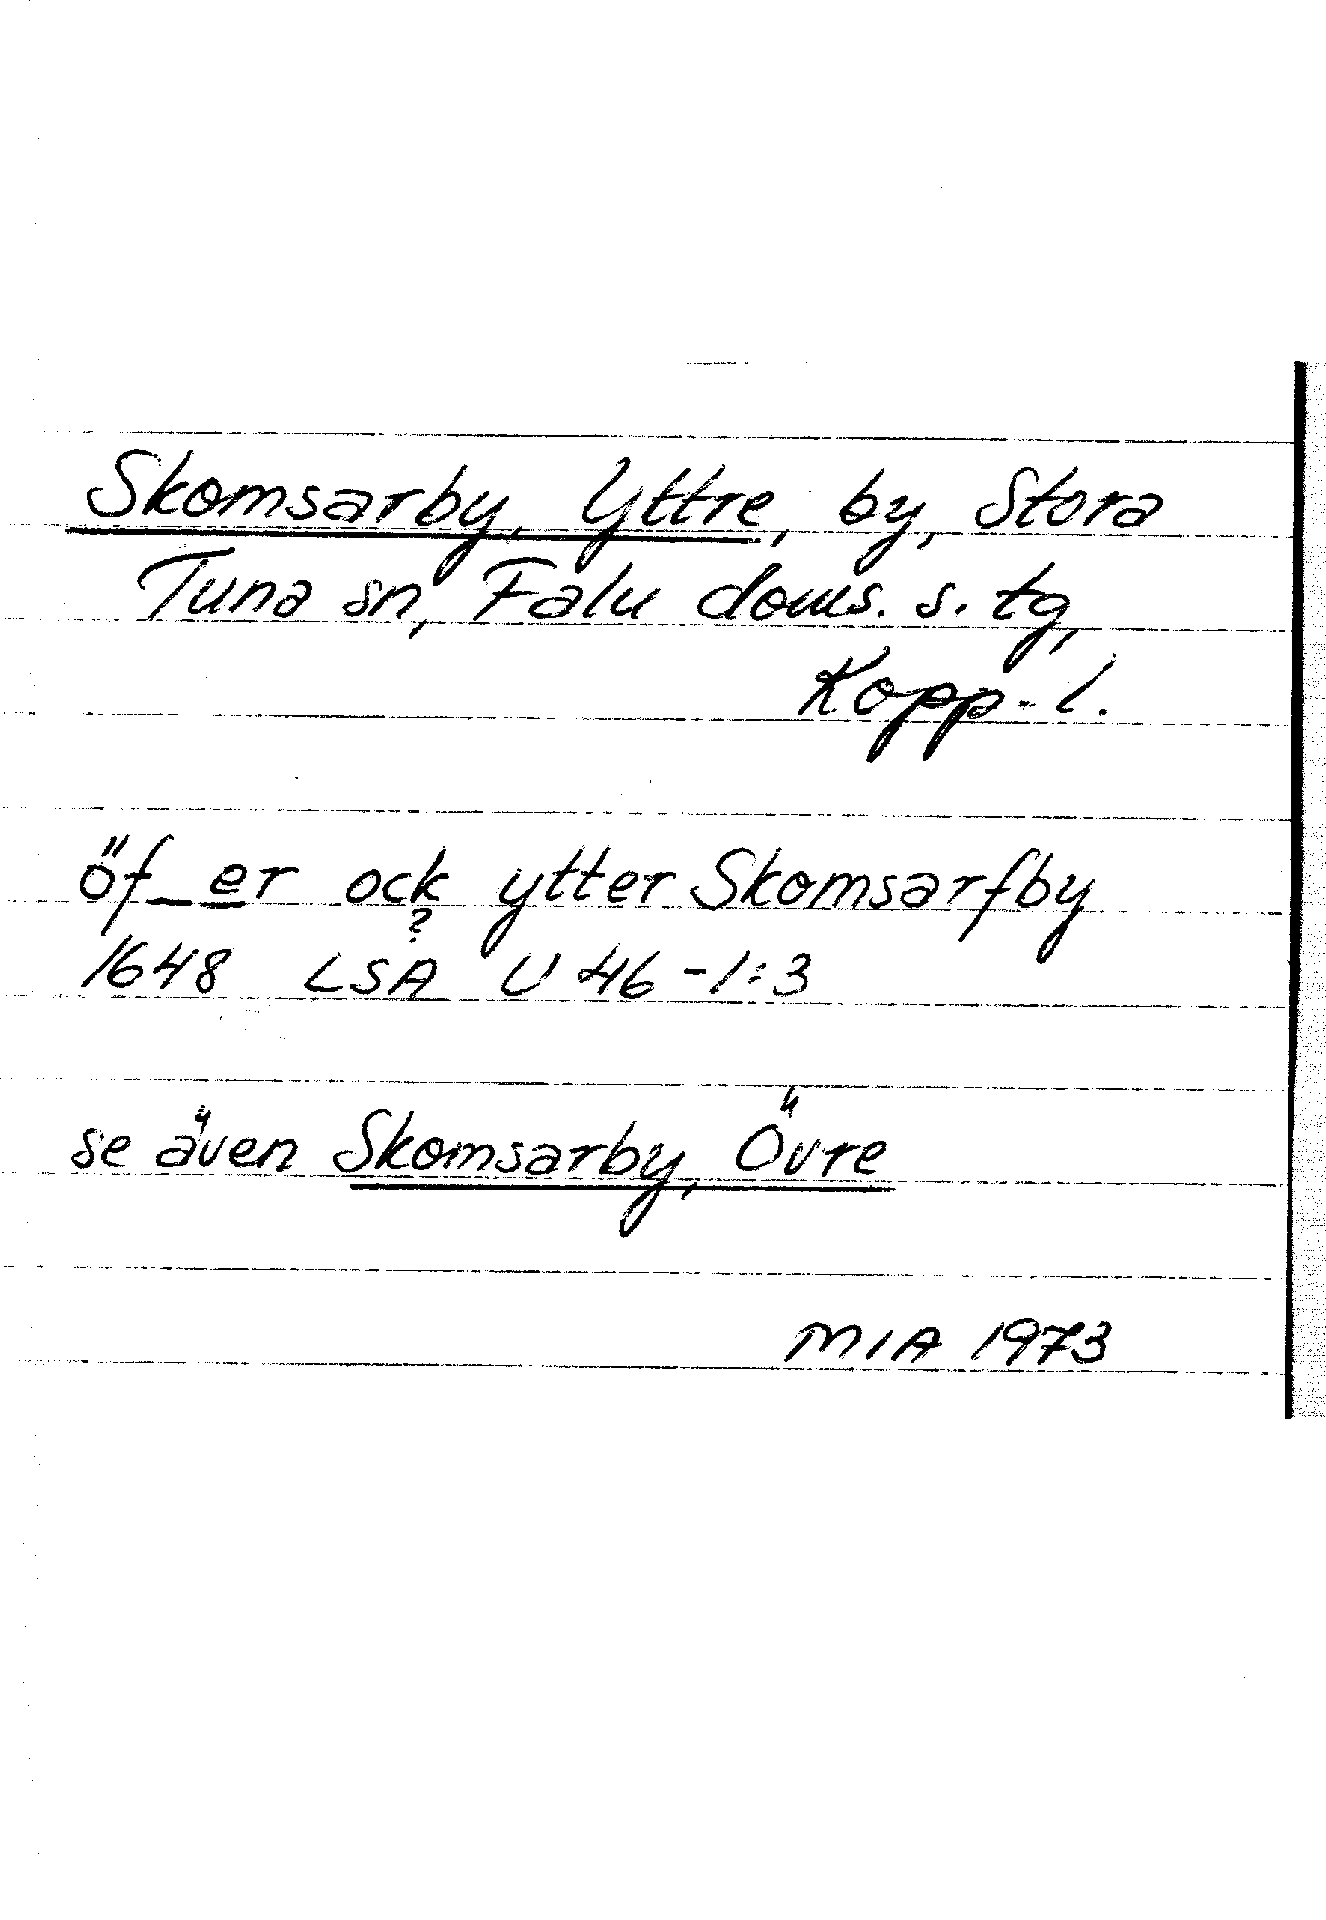 Skomsarby, Yttre, by, Stora
Tuna sn, Falu doms. s. tg,
Kopp. l.
öf_er ock ytter Skomsarfby
?
1648 LSA U 46-1:3
se även Skomsarby, Övre
MIA 1973